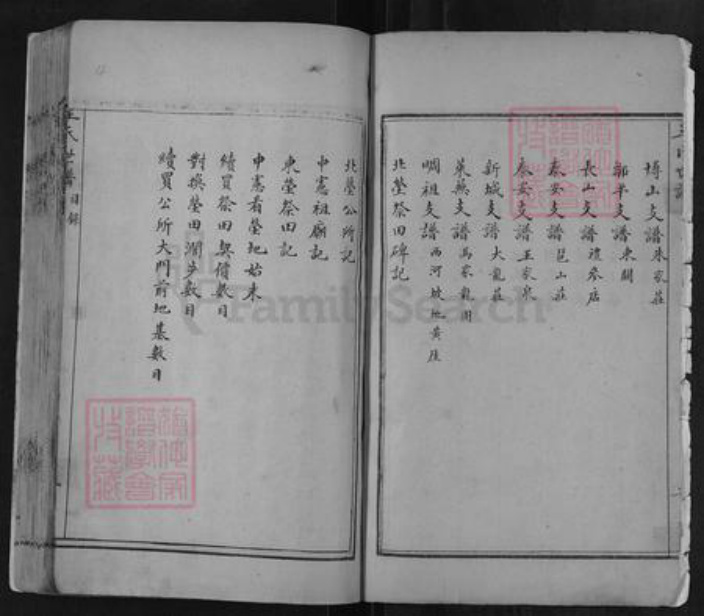 博山支譜朱家莊
鄒平支譜東關
長山支譜禮參店
泰安支譜邱山莊
泰安支譜王家泉
新城支譜大龍莊
萊蕪支譜馬家龍灣
嗰祖支譜西河坡地黃崖
北塋祭田碑記
北塋公所記
中憲祖廟記
東塋祭田記
中憲看塋地始末
續買祭田契價數目
對換塋田濶步數目
續買公所大門前地基數目
王氏世譜 目錄
FamilySearch